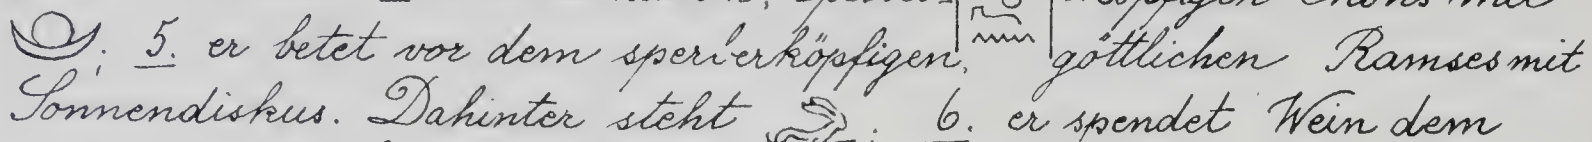 köpfigen Chons mit
; 5. er betet vor dem sperberköpfigen, göttlichen Ramses mit
Sonnendiskus. Dahinter steht . 6. er spendet Wein dem